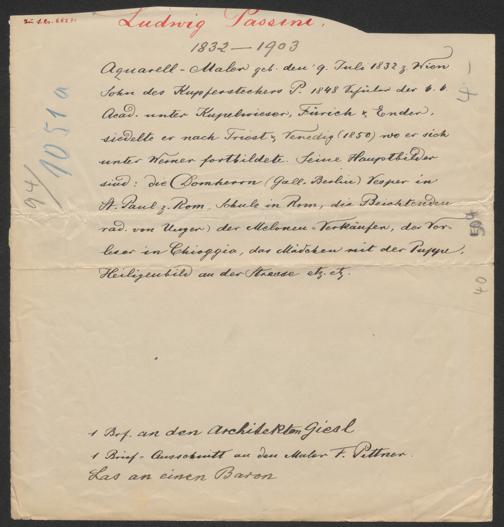 Ludwig Passini.
1832 — 1903
Aquarell - Maler geb. den 9. Juli 1832 z. Wien
Sohn des Kupferstechers P. 1848 Schüler der k. k.
Acad. unter Kupelwieser, Führich & Ender,
siedelte er nach Triest & Venedig (1850) wo er sich
unter Werner fortbildete. Seine Hauptbilder
sind: die Domherrn (Gall. Berlin) Vesper in
St. Paul z. Rom, Schule in Rom, die Beichtenden
rad. von Unger) der Melonen - Verkäufer, der Vor-
leser in Chioggia, das Mädchen mit der Puppe,
Heiligenbild an der Strasse etz. etz.
94/1051a
4 -
40
1 Brf. an den Architekten Giesl
1 Brief - Ausschnitt an den Maler F. Pittner.
Las an einen Baron